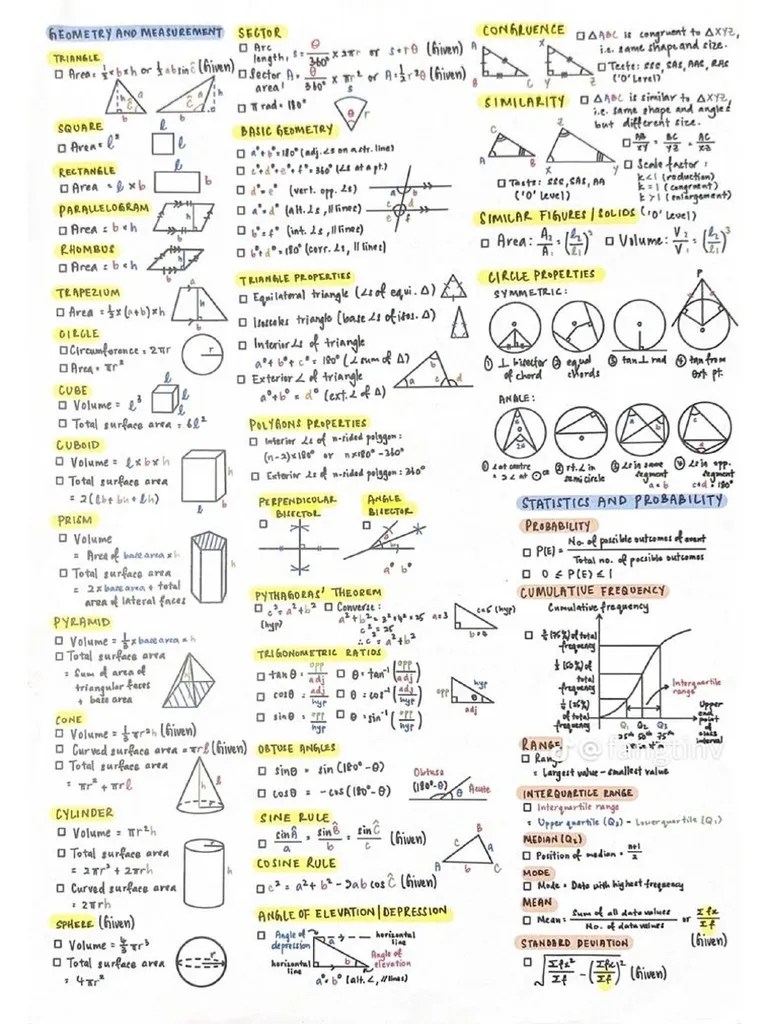 GEOMETRY AND MEASUREMENT
TRIANGLE
□ Area = ½ × b × h or ½ ab sin Ĉ (Given)
h a Ĉ b
a h Ĉ b
SQUARE
□ Area = l²
l
l
RECTANGLE
□ Area = l × b
l
b
PARALLELOGRAM
□ Area = b × h
h
b
RHOMBUS
□ Area = b × h
h
b
TRAPEZIUM
□ Area = ½ × (a+b) × h
a
h
b
CIRCLE
□ Circumference = 2πr
□ Area = πr²
r
CUBE
□ Volume = l³
□ Total surface area = 6l²
l
l
l
CUBOID
□ Volume = l × b × h
□ Total surface area
= 2(lb + bh + lh)
h
l
b
PRISM
□ Volume
= Area of base area × h
□ Total surface area
= 2 × base area + total
area of lateral faces
h
PYRAMID
□ Volume = ⅓ × base area × h
□ Total surface area
= Sum of area of
triangular faces
+ base area
h
CONE
□ Volume = ⅓πr²h (Given)
□ Curved surface area = πrl (Given)
□ Total surface area
= πr² + πrl
h
l
r
CYLINDER
□ Volume = πr²h
□ Total surface area
= 2πr² + 2πrh
□ Curved surface area
= 2πrh
h
SPHERE (Given)
□ Volume = 4/3 πr³
□ Total surface area
= 4πr²
r
SECTOR
□ Arc
length, s = θ/360° × 2πr or s = rθ (Given)
□ Sector
area, A = θ/360° × πr² or A = ½r²θ (Given)
□ π rad = 180°
s
θ
r
BASIC GEOMETRY
□ a° + b° = 180° (adj. ∠s on a str. line)
□ c° + d° + e° + f° = 360° (∠s at a pt.)
□ d° = e° (vert. opp. ∠s)
□ a° = d° (alt. ∠s, // lines)
□ b° = f° (int. ∠s, // lines)
□ b° + d° = 180° (corr. ∠s, // lines)
a b
c d
e f
TRIANGLE PROPERTIES
□ Equilateral triangle (∠s of equi. Δ)
□ Isosceles triangle (base ∠s of isos. Δ)
□ Interior ∠s of triangle
a° + b° + c° = 180° (∠ sum of Δ)
□ Exterior ∠ of triangle
a° + b° = d° (ext. ∠ of Δ)
b
a c d
POLYGONS PROPERTIES
□ Interior ∠s of n-sided polygon:
(n-2) × 180° or n × 180° - 360°
□ Exterior ∠s of n-sided polygon: 360°
PERPENDICULAR
BISECTOR
□
ANGLE
BISECTOR
□
a°
b°
a° = b°
PYTHAGORAS' THEOREM
□ c² = a² + b²
(hyp)
□ Converse:
a² + b² = 3² + 4² = 25
c² = 25
∴ c² = a² + b²
a=3
c=5 (hyp)
b=4
TRIGONOMETRIC RATIOS
□ tan θ = opp/adj □ θ = tan⁻¹(opp/adj)
□ cos θ = adj/hyp □ θ = cos⁻¹(adj/hyp)
□ sin θ = opp/hyp □ θ = sin⁻¹(opp/hyp)
opp
hyp
θ
adj
OBTUSE ANGLES
□ sin θ = sin (180° - θ)
□ cos θ = -cos (180° - θ)
Obtuse
(180° - θ)
θ
Acute
SINE RULE
□ sin Â/a = sin B̂/b = sin Ĉ/c (Given)
COSINE RULE
□ c² = a² + b² - 2ab cos Ĉ (Given)
B
c a
A b C
ANGLE OF ELEVATION/DEPRESSION
□ Angle of
depression
a
horizontal
line
horizontal
line
b
Angle of
elevation
a° = b° (alt. ∠, // lines)
CONGRUENCE
□ ΔABC is congruent to ΔXYZ,
i.e. same shape and size.
□ Tests: SSS, SAS, AAS, RHS
('O' Level)
A
B C
X
Y Z
SIMILARITY
□ ΔABC is similar to ΔXYZ,
i.e. same shape and angles
but different size.
□ AB/XY = BC/YZ = AC/XZ
□ Scale factor:
k < 1 (reduction)
k = 1 (congruent)
k > 1 (enlargement)
□ Tests: SSS, SAS, AA
('O' Level)
SIMILAR FIGURES/SOLIDS ('O' Level)
□ Area: A₂/A₁ = (l₂/l₁)² □ Volume: V₂/V₁ = (l₂/l₁)³
CIRCLE PROPERTIES
SYMMETRIC:
P
① ⊥ bisector
of chord
② equal
chords
③ tan ⊥ rad
④ tan from
ext. pt.
ANGLE:
① ∠ at centre
= 2 ∠ at ⊙ce
② rt. ∠ in
semicircle
③ ∠s in same
segment
a = b
④ ∠s in opp.
segment
c + d = 180°
STATISTICS AND PROBABILITY
PROBABILITY
□ P(E) = No. of possible outcomes of event / Total no. of possible outcomes
□ 0 ≤ P(E) ≤ 1
CUMULATIVE FREQUENCY
Cumulative frequency
□ ¾ (75%) of total
frequency
½ (50%) of
total
frequency
¼ (25%)
of total
frequency
Interquartile
range
Q₁ Q₂ Q₃
25th 50th 75th
Upper
end
point of
class
interval
@fangtinv
RANGE
□ Range
= Largest value - smallest value
INTERQUARTILE RANGE
□ Interquartile range
= Upper quartile (Q₃) - Lower quartile (Q₁)
MEDIAN (Q₂)
□ Position of median = n+1/2
MODE
□ Mode = Data with highest frequency
MEAN
□ Mean = Sum of all data values / No. of data values or Σfx/Σf
(Given)
STANDARD DEVIATION
□ √(Σfx²/Σf - (Σfx/Σf)²) (Given)